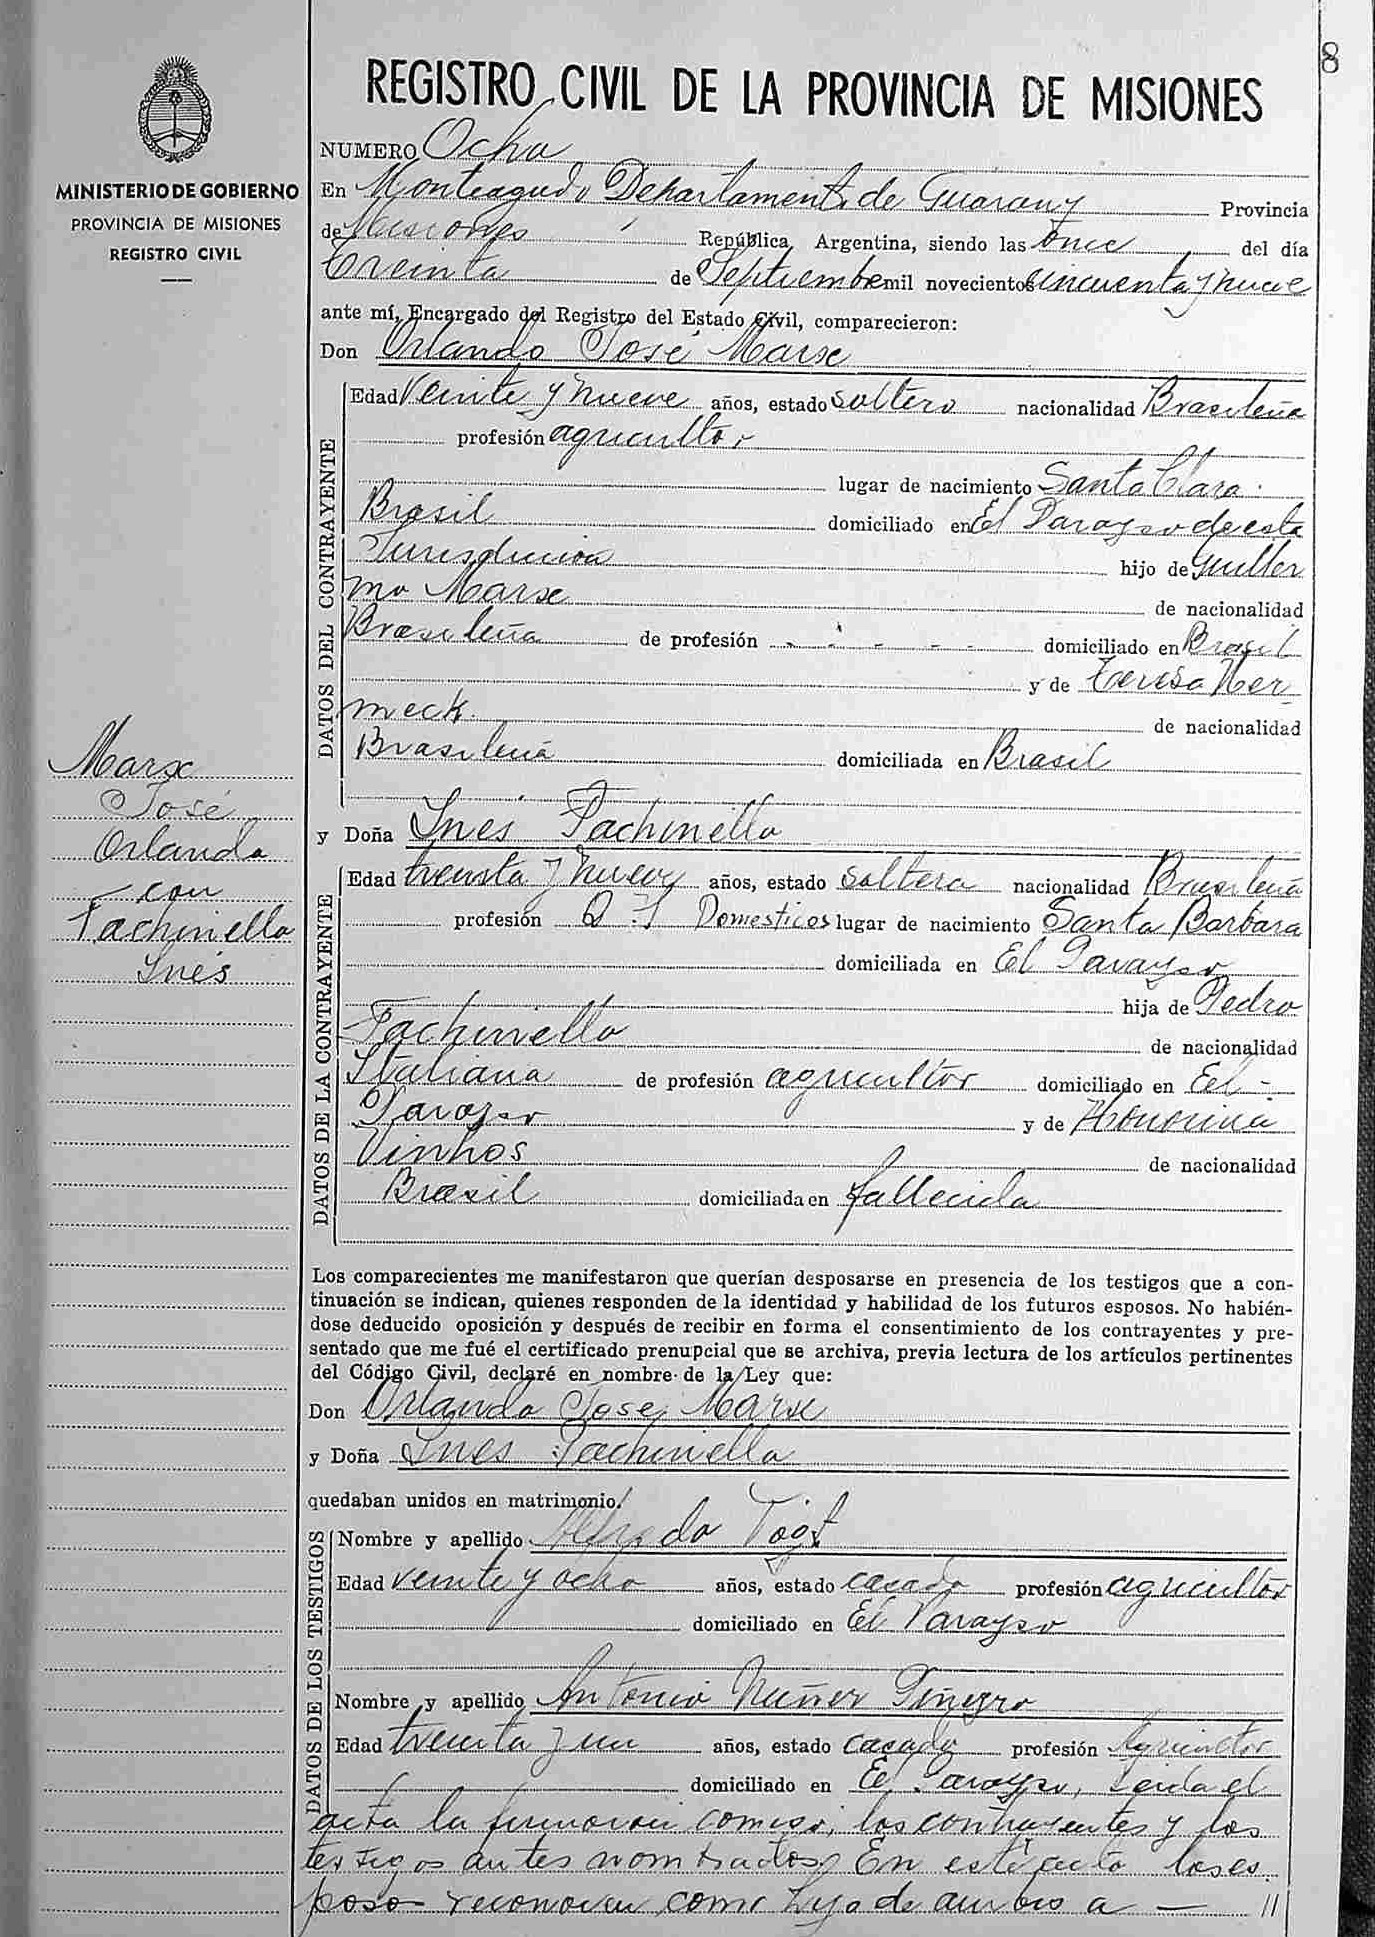 8
REGISTRO CIVIL DE LA PROVINCIA DE MISIONES
MINISTERIO DE GOBIERNO
PROVINCIA DE MISIONES
REGISTRO CIVIL
NUMERO Ocho
En Monteagudo Departamento de Guarany Provincia
de Misiones República Argentina, siendo las once del día
treinta de Septiembre mil novecientos cincuenta y nueve
ante mí, Encargado del Registro del Estado Civil, comparecieron:
Don Orlando José Marx
DATOS DEL CONTRAYENTE
Edad Veinte y nueve años, estado soltero nacionalidad Brasileña
profesión agricultor
lugar de nacimiento Santa Clara
Brasil domiciliado en El Parayso de esta
Jurisdiccion hijo de Guiller
mo Marx de nacionalidad
Brasileña de profesión - - - - domiciliado en Brasil
y de Teresa Her
meck de nacionalidad
Brasileña domiciliada en Brasil
Marx
José
Orlando
con
Fachinello
Inés
y Doña Inés Fachinello
DATOS DE LA CONTRAYENTE
Edad treinta y nueve años, estado soltera nacionalidad Brasileña
profesión Q. Domesticos lugar de nacimiento Santa Barbara
domiciliada en El Parayso
hija de Pedro
Fachinello de nacionalidad
Italiana de profesión agricultor domiciliado en El -
Parayso y de Honorina
Vinhos de nacionalidad
Brasil domiciliada en fallecida
Los comparecientes me manifestaron que querían desposarse en presencia de los testigos que a con-
tinuación se indican, quienes responden de la identidad y habilidad de los futuros esposos. No habién-
dose deducido oposición y después de recibir en forma el consentimiento de los contrayentes y pre-
sentado que me fué el certificado prenupcial que se archiva, previa lectura de los artículos pertinentes
del Código Civil, declaré en nombre de la Ley que:
Don Orlando José Marx
y Doña Inés Fachinello
quedaban unidos en matrimonio.
DATOS DE LOS TESTIGOS
Nombre y apellido Alfredo Vogt
Edad veinte y ocho años, estado casado profesión agricultor
domiciliado en El Parayso
Nombre y apellido Antonio Nuñer Piñeyro
Edad treinta y un años, estado casado profesión Agricultor
domiciliado en El Parayso, Leida el
acta la firmaron comigo, los contrayentes y los
testigos antes nombrados. En este acto los es
poso reconocen como hijo de ambos a — //